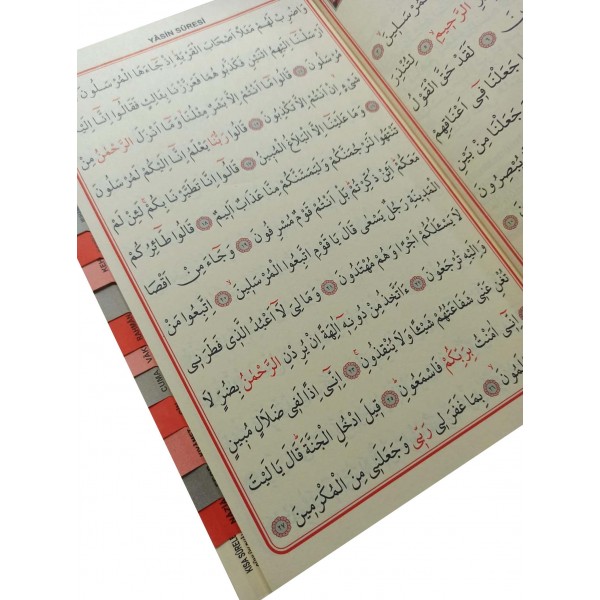 YÂSİN SÛRESİ
وَاضْرِبْ لَهُمْ مَثَلًا اَصْحَابَ الْقَرْيَةِ اِذْ جَاءَهَا الْمُرْسَلُونَ
اَرْسَلْنَا اِلَيْهِمُ اثْنَيْنِ فَكَذَّبُوهُمَا فَعَزَّزْنَا بِثَالِثٍ فَقَالُوا اِنَّا اِلَيْكُمْ
مُرْسَلُونَ ﴿١٤﴾ قَالُوا مَا اَنْتُمْ اِلَّا بَشَرٌ مِثْلُنَا وَمَا اَنْزَلَ الرَّحْمٰنُ مِنْ
شَىْءٍ اِنْ اَنْتُمْ اِلَّا تَكْذِبُونَ ﴿١٥﴾ قَالُوا رَبُّنَا يَعْلَمُ اِنَّا اِلَيْكُمْ لَمُرْسَلُونَ
وَمَا عَلَيْنَا اِلَّا الْبَلَاغُ الْمُبِينُ ﴿١٧﴾ قَالُوا اِنَّا تَطَيَّرْنَا بِكُمْ لَئِنْ لَمْ
تَنْتَهُوا لَنَرْجُمَنَّكُمْ وَلَيَمَسَّنَّكُمْ مِنَّا عَذَابٌ اَلِيمٌ ﴿١٨﴾ قَالُوا طَائِرُكُمْ
مَعَكُمْ اَئِنْ ذُكِّرْتُمْ بَلْ اَنْتُمْ قَوْمٌ مُسْرِفُونَ ﴿١٩﴾ وَجَاءَ مِنْ اَقْصَا
الْمَدِينَةِ رَجُلٌ يَسْعٰى قَالَ يَا قَوْمِ اتَّبِعُوا الْمُرْسَلِينَ ﴿٢٠﴾ اِتَّبِعُوا مَنْ
لَا يَسْـَٔلُكُمْ اَجْرًا وَهُمْ مُهْتَدُونَ ﴿٢١﴾ وَمَا لِىَ لَا اَعْبُدُ الَّذِى فَطَرَنِى
وَاِلَيْهِ تُرْجَعُونَ ﴿٢٢﴾ ءَاَتَّخِذُ مِنْ دُونِهِ اٰلِهَةً اِنْ يُرِدْنِ الرَّحْمٰنُ بِضُرٍّ لَا
تُغْنِ عَنِّى شَفَاعَتُهُمْ شَيْـًٔا وَلَا يُنْقِذُونِ ﴿٢٣﴾ اِنِّى اِذًا لَفِى ضَلَالٍ مُبِينٍ
اِنِّى اٰمَنْتُ بِرَبِّكُمْ فَاسْمَعُونِ ﴿٢٥﴾ قِيلَ ادْخُلِ الْجَنَّةَ قَالَ يَا لَيْتَ
بِمَا غَفَرَ لِى رَبِّى وَجَعَلَنِى مِنَ الْمُكْرَمِينَ ﴿٢٧﴾
الرَّحِيمِ ﴿٥﴾ لِتُنْذِرَ
لَقَدْ حَقَّ الْقَوْلُ
جَعَلْنَا فِى اَعْنَاقِهِمْ
وَجَعَلْنَا مِنْ بَيْنِ
RAHMAN
VAKI
CUMA
KISA SÛRELER